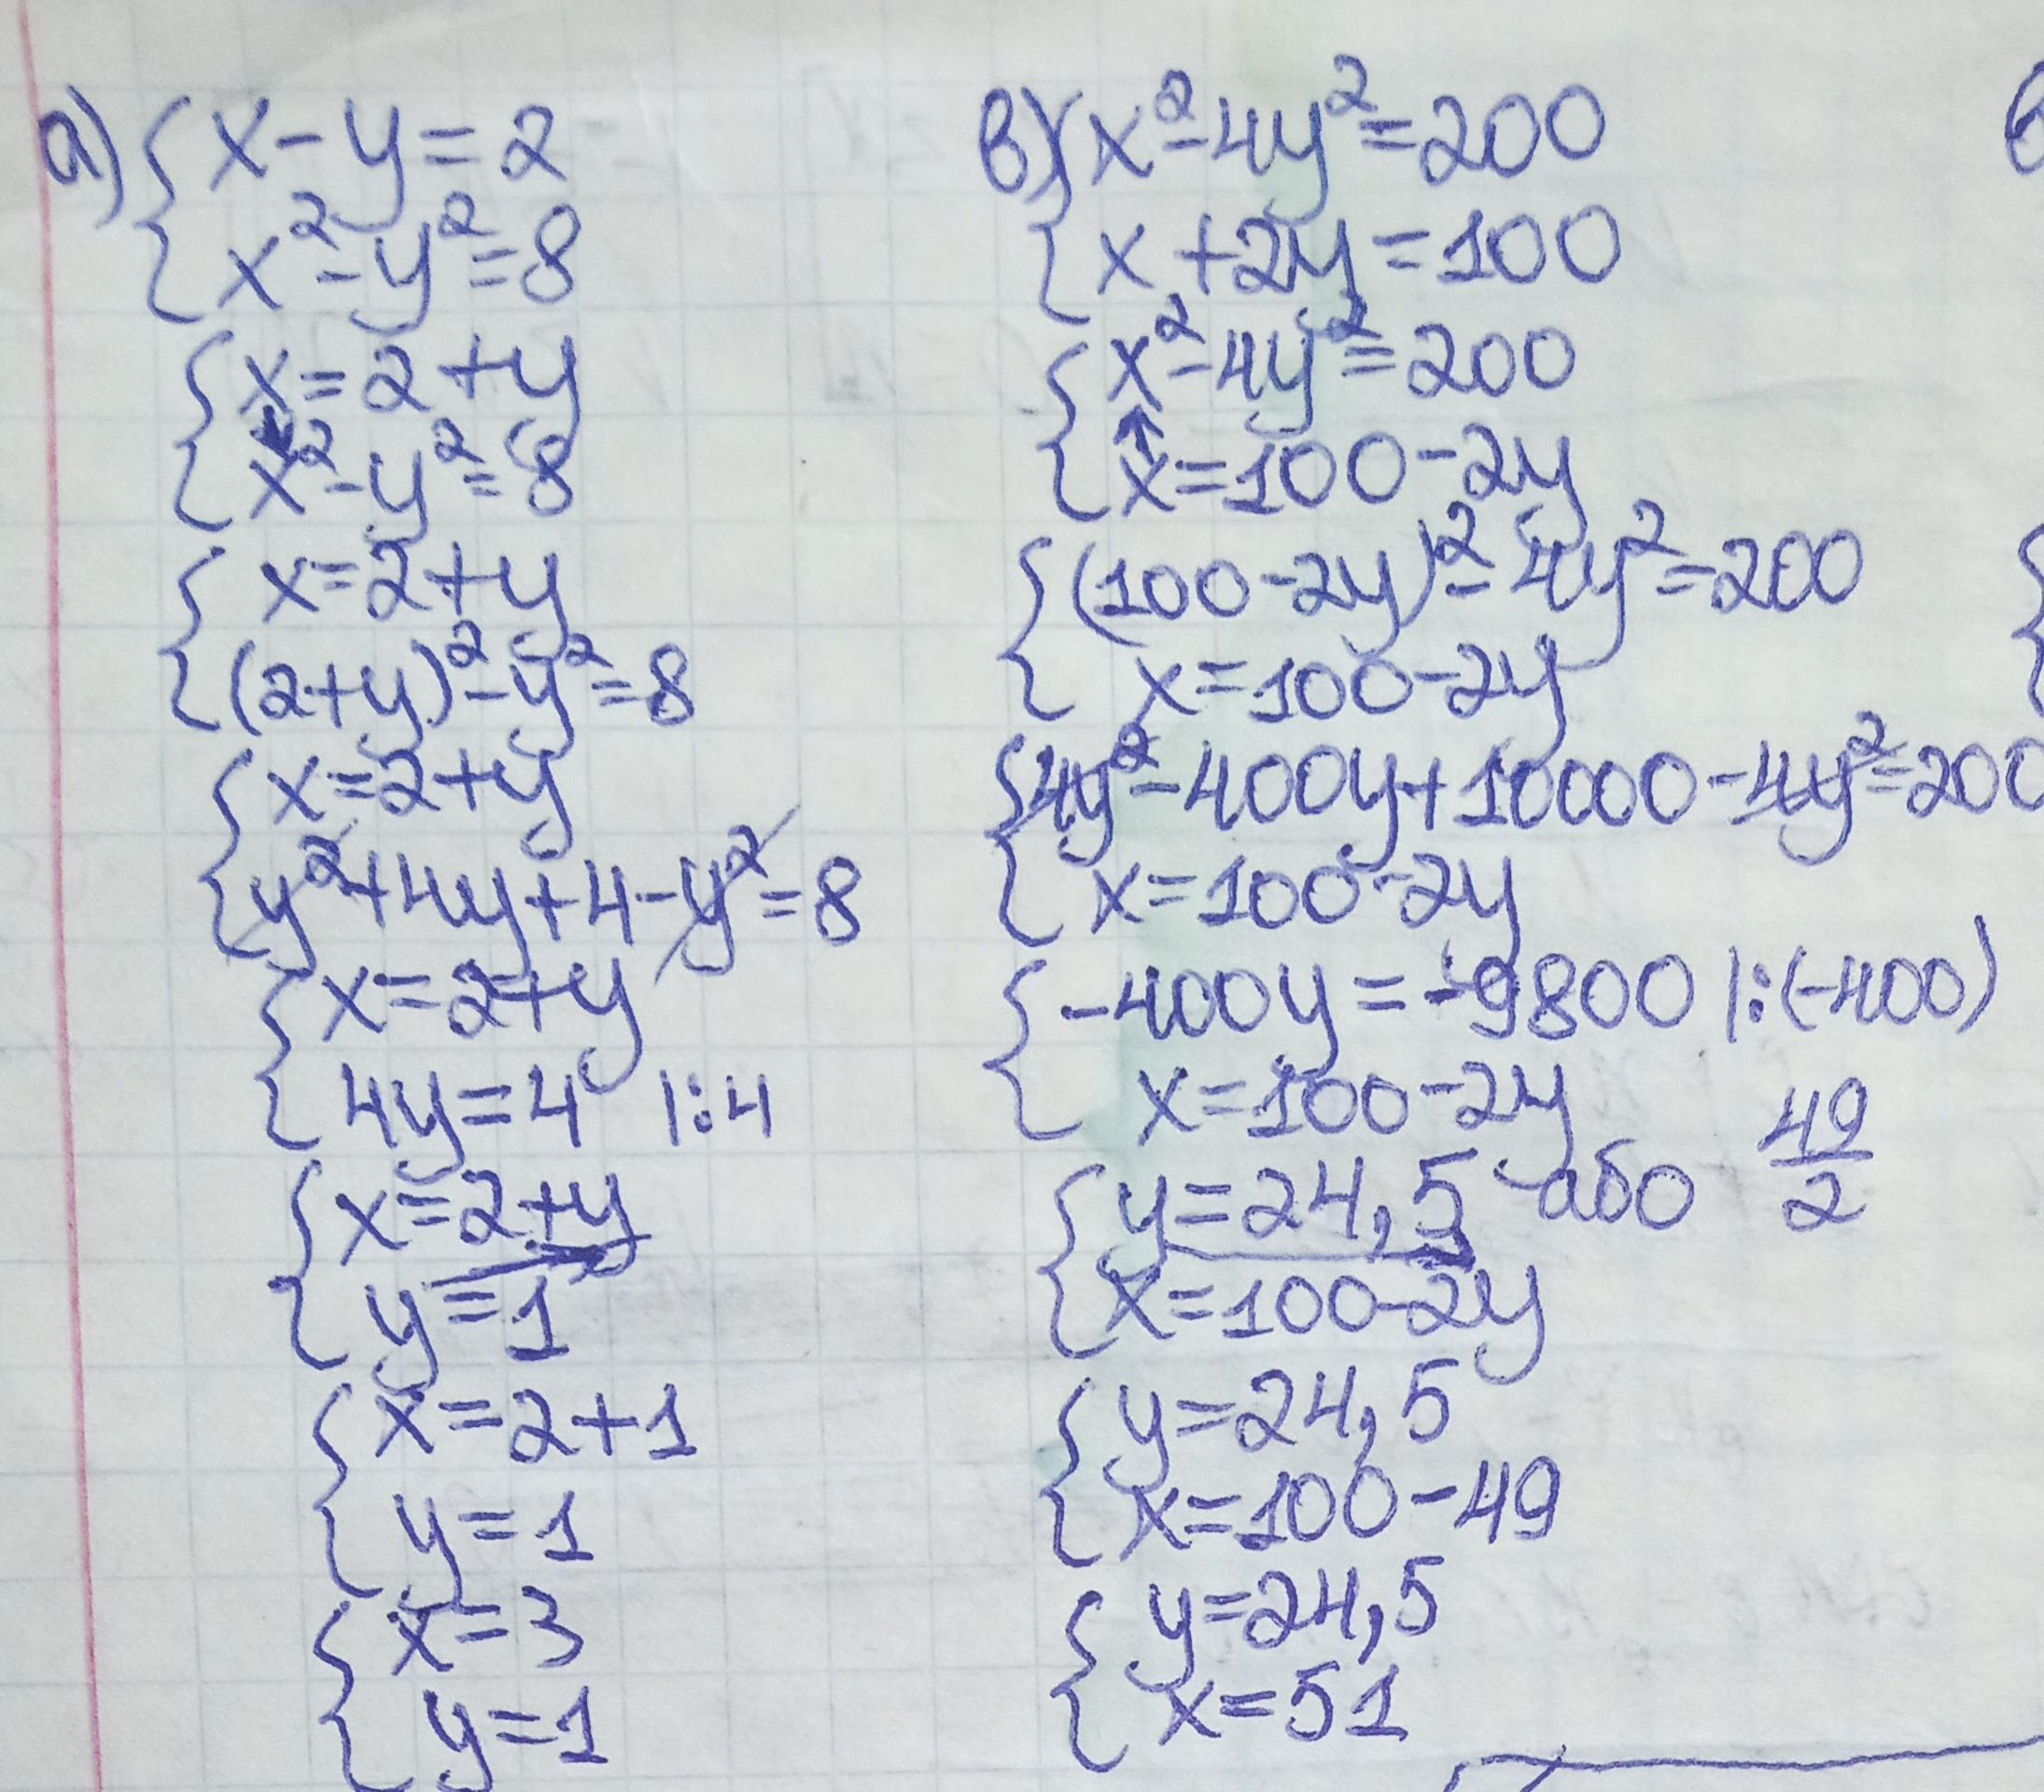 а) { x - y = 2
x² - y² = 8
{ x = 2 + y
x² - y² = 8
{ x = 2 + y
(2+y)² - y² = 8
{ x = 2 + y
y² + 4y + 4 - y² = 8
{ x = 2 + y
4y = 4 |:4
{ x = 2 + y
y = 1
{ x = 2 + 1
y = 1
{ x = 3
y = 1
в) { x² - 4y² = 200
x + 2y = 100
{ x² - 4y² = 200
x = 100 - 2y
{ (100 - 2y)² - 4y² = 200
x = 100 - 2y
{ 4y² - 400y + 10000 - 4y² = 200
x = 100 - 2y
{ -400y = -9800 |:(-400)
x = 100 - 2y
{ y = 24,5 - або 49/2
x = 100 - 2y
{ y = 24,5
x = 100 - 49
{ y = 24,5
x = 51